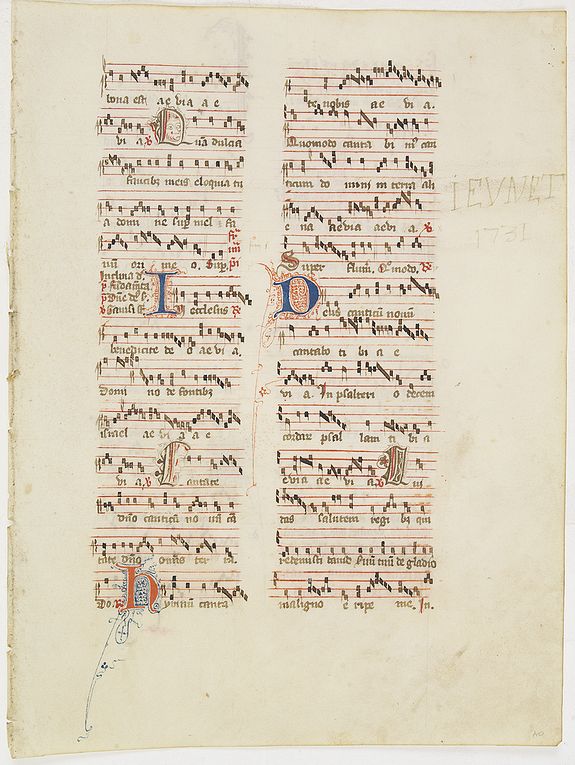 bona est ae via a e
vi a. ℣ Quā dulcia
faucibz meis eloquia tu
a domi ne sup mel fa
uū ori me o. Sup.
In ecclesiis ℟
benedicite de o ae vi a.
Domi no de fontibz
israel ae vi a a e
vi a. ℣ Cantate
dño canticū no uū cā
tate dño omīs ter ra.
Do. ℟ hymnū canta
te nobis ae vi a.
Quomodo canta bi mꝰ can
ticum do mini in terra ali
e na ae via aevi a. ℣
Super flum. Qͦmodo. ℟
Deus canticū nouū
cantabo ti bi a e
vi a. In psalteri o decem
cordar psal lam ti bi a
e via a e vi a. ℣ Qui
das salutem regi bꝫ qui
redemisti dauid seruū tuū de gladio
maligno e ripe me. In.
IEVNET
1731